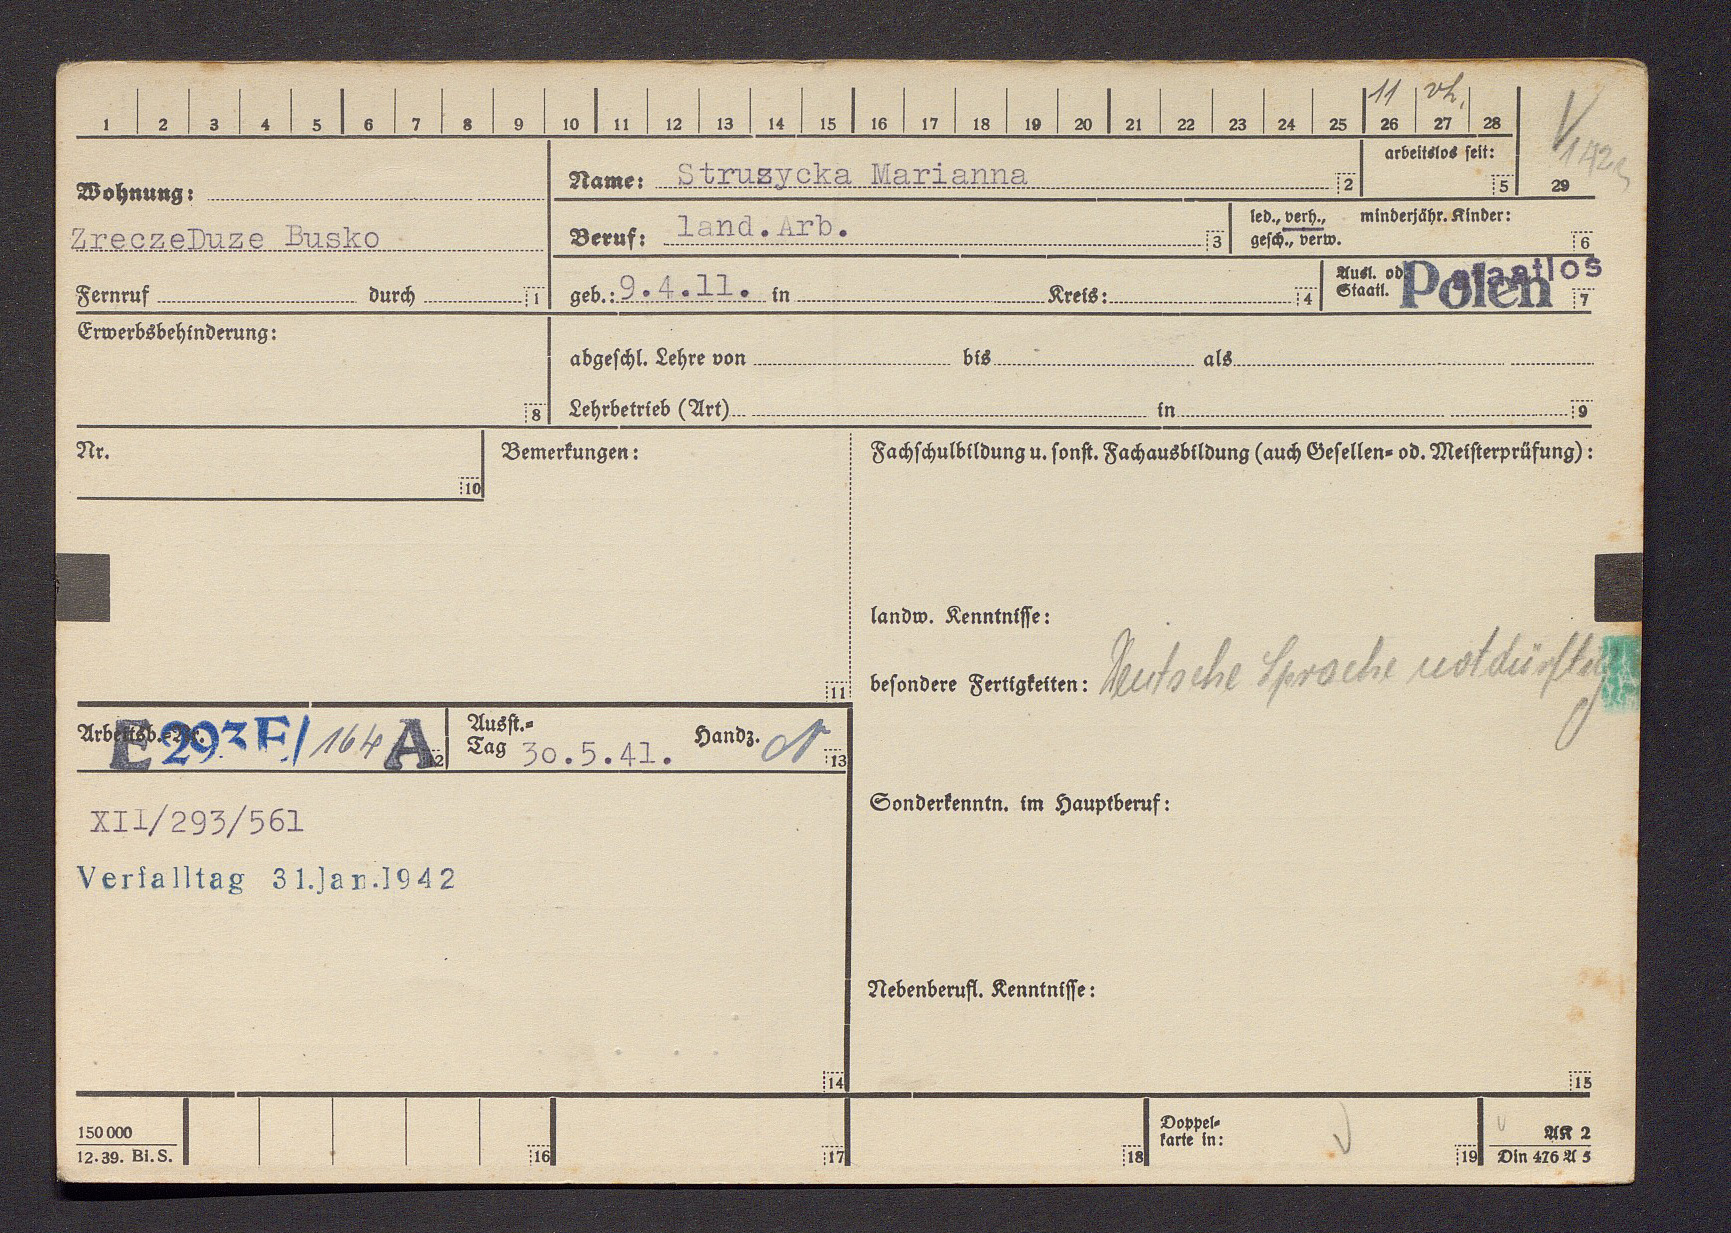 11 vh.
1 2 3 4 5 6 7 8 9 10 11 12 13 14 15 16 17 18 19 20 21 22 23 24 25 26 27 28
29
arbeitslos seit:
5
Wohnung:
ZreczeDuze Busko
Fernruf durch 1
Name: Struzycka Marianna 2
Beruf: land.Arb. 3
led., verh., minderjähr. Kinder:
gesch., verw. 6
geb.: 9.4.11. in Kreis: 4
Ausl. od.
Staatl. Polen staatlos 7
Erwerbsbehinderung:
8
abgeschl. Lehre von bis als
Lehrbetrieb (Art) in 9
Nr.
10
Bemerkungen:
11
Fachschulbildung u. sonst. Fachausbildung (auch Gesellen- od. Meisterprüfung):
landw. Kenntnisse:
besondere Fertigkeiten: Deutsche Sprache notdürftig
Arbeitsb.-Nr. E 293 E/ 164 A 12
Ausst.-
Tag 30.5.41. Handz. 13
XII/293/561
Verfalltag 31.Jan.1942
14
Sonderkenntn. im Hauptberuf:
Nebenberufl. Kenntnisse:
15
150 000
12.39. Bi.S.
16
17
18
Doppel-
karte in:
19
AK 2
Din 476 A 5